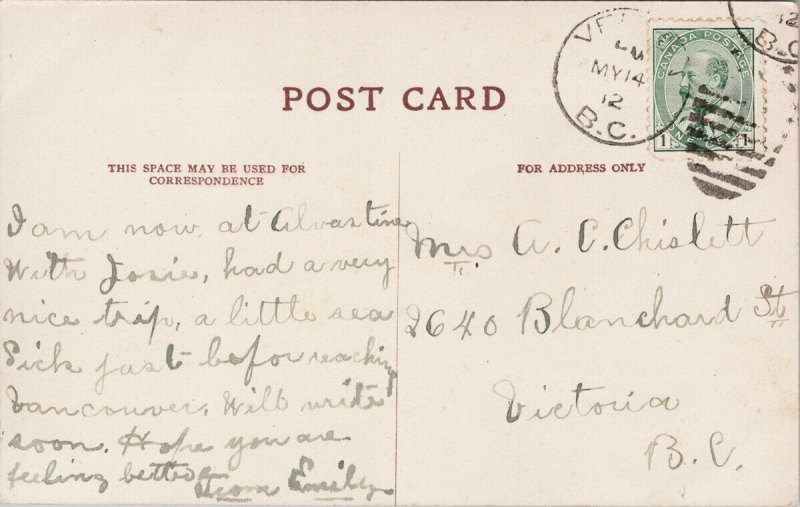 POST CARD
THIS SPACE MAY BE USED FOR
CORRESPONDENCE
FOR ADDRESS ONLY
I am now at Alvastine
With Josie, had a very
nice trip, a little sea
Sick just befor reaching
Vancouver, Will write
soon. Hope you are
feeling better
from Emily
Mrs A. C. Chislett
2640 Blanchard St
Victoria
B.C.
MY 14
12
B.C.
CANADA POSTAGE
1 ONE CENT 1
12
B.C.